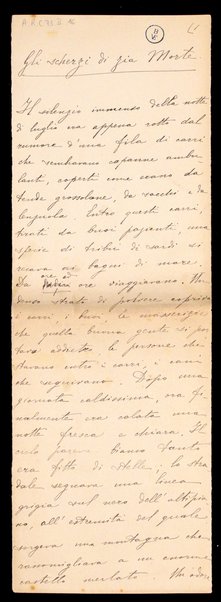 A.R.C. 73 B 16
Gli scherzi di zia Morte.
Il silenzio immenso della notte
di luglio era appena rotto dal
rumore d'una fila di carri
che sembravano capanne ambu-
lanti, coperti come erano da
tende grossolane, da sacchi e da
lenzuola. Entro questi carri,
tirati da buoi pazienti, una
specie di tribù di sardi si
recava ai bagni di mare.
Da ore ed ore viaggiavano. Un
denso strato di polvere copriva
i carri, i buoi, le masserizie
che quella buona gente si por-
tava addietro, le persone che
stavano entro i carri, i cani
che seguivano. Dopo una
giornata caldissima, era fi-
nalmente calata una
notte fresca e chiara. Il
cielo pareva bianco tanto
era fitto di stelle; lo stra-
dale segnava una linea
grigia sul nero dell'altipia-
no, all'estremità del quale
sorgeva una montagna che
rassomigliava a un enorme
castello merlato. Un odore